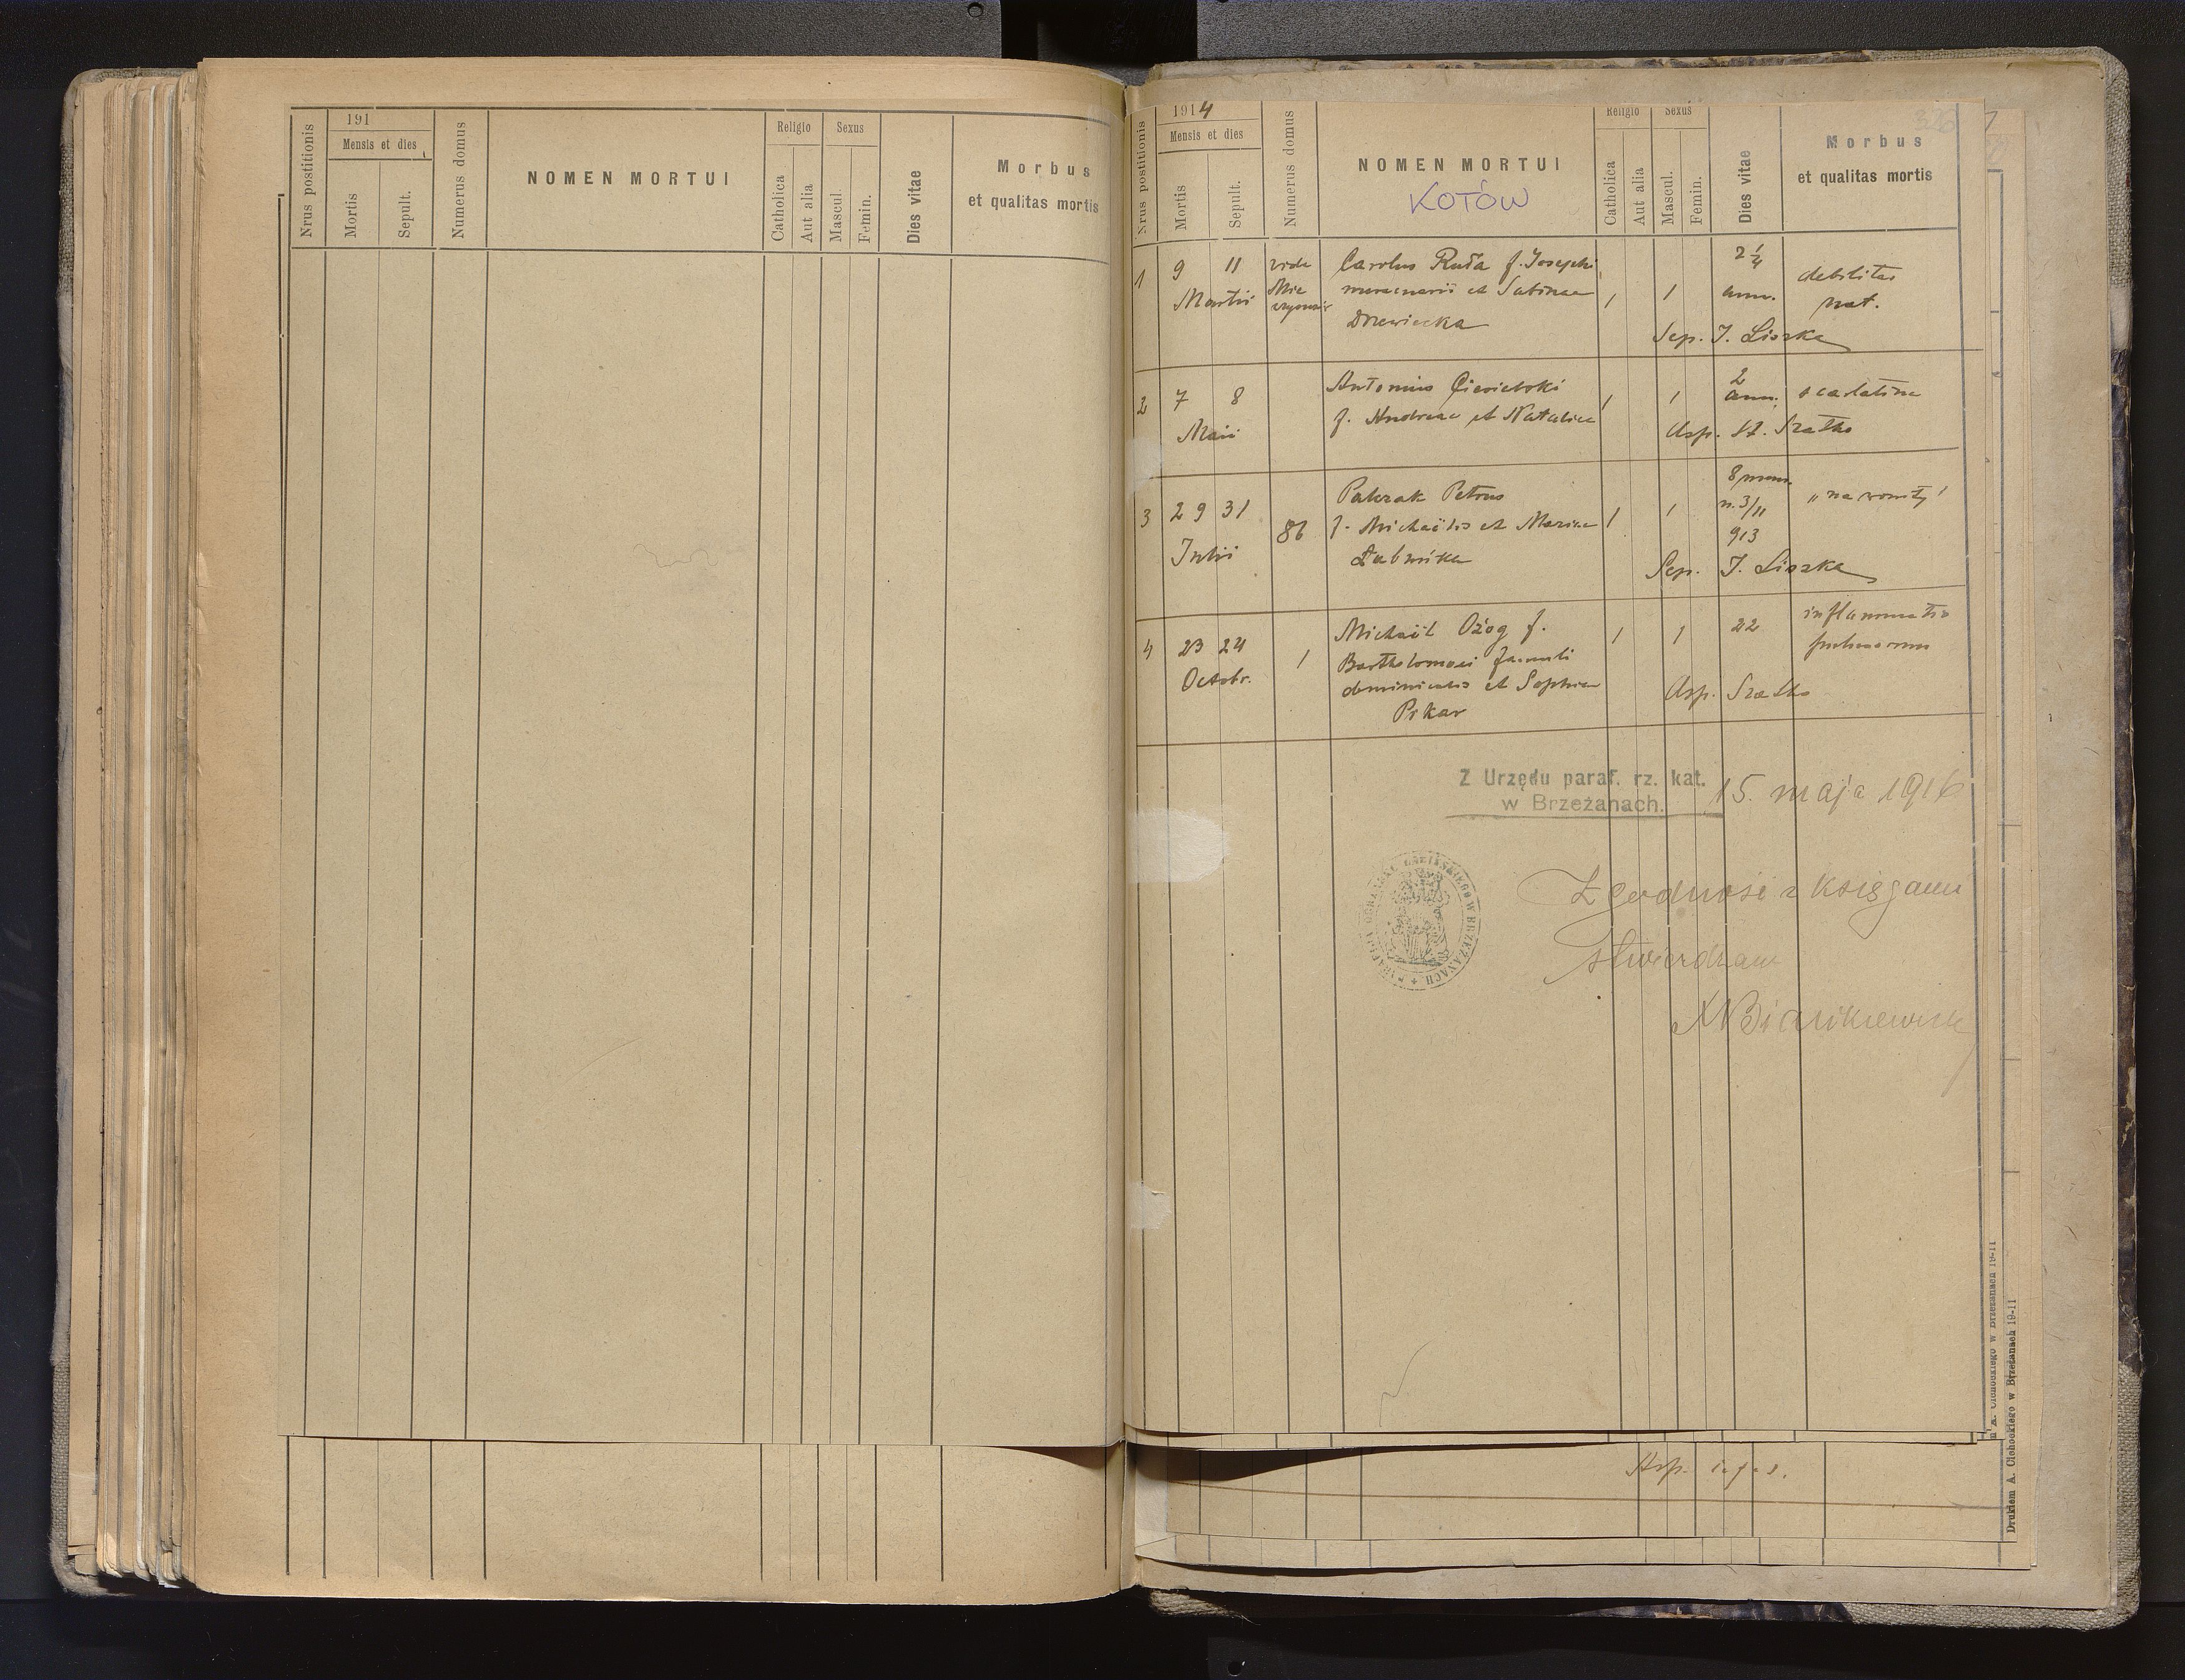 191
Mensis et dies
Nrus postitionis
Mortis
Sepult.
Numerus domus
NOMEN MORTUI
Religio
Catholica
Aut alia
Sexus
Mascul.
Femin.
Dies vitae
Morbus
et qualitas mortis
1914
Mensis et dies
Nrus postitionis
Mortis
Sepult.
Numerus domus
NOMEN MORTUI
KOTÓW
Religio
Catholica
Aut alia
Sexus
Mascul.
Femin.
Dies vitae
Morbus
et qualitas mortis
1 9 11 vide Carolus Ruta f. Josephi 2 1/4 debilitas
Martii mercenarii et Sabinae 1 1 ann. nat.
Drewiecka
Sep. J. Liszka
2 7 8 Antonius 1 1 2 ann. scarlatina
Maii f. Andreae et Nataliae
Asp. St. Szatko
3 29 31 86 Petrus 1 1 8 mens.
Julii f. Michaëlis et Mariae n. 3/11
913
Sep. J. Liszka
4 23 24 1 Michaël Ożog f. 1 1 22 inflammatio
Octobr. Bartholomaei famuli pulmonum
dominicalis et Sophiae
Pikar
Asp. Szatko
Z Urzędu paraf. rz. kat.
w Brzeżanach.
15. maja 1916
Zgodność z księgami
stwierdzam
Asp. i. f. s.
A. Cichockiego w Brzeżanach 19-11
Drukiem A. Cichockiego w Brzeżanach 19-11